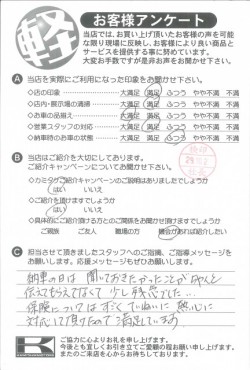 軽
お客様アンケート
当店では、お買い上げ頂いたお客様の声を可能
な限り現場に反映し、お客様により良い商品と
サービスを提供する事に努めています。
大変お手数ですが是非お声をお聞かせ下さい。
A 当店を実際にご利用になった印象をお聞かせ下さい。
◇店の印象 大満足 満足 ふつう やや不満 不満
◇店内・展示場の清掃 大満足 満足 ふつう やや不満 不満
◇お車の品揃え 大満足 満足 ふつう やや不満 不満
◇営業スタッフの対応 大満足 満足 ふつう やや不満 不満
◇納車時のお車の状態 大満足 満足 ふつう やや不満 不満
B 当店はご紹介を大切にしてあります。
ご紹介キャンペーンについてお聞かせ下さい。
◇カミタケご紹介キャンペーンのご説明はありましたでしょうか
はい いいえ
◇ご紹介を頂けますでしょうか
はい いいえ
◇具体的にご紹介頂ける方とのご関係をお聞かせ頂けますでしょうか
ご親族 ご友人 職場の方 機会があれば紹介したい
C 担当させて頂きましたスタッフへのご指摘、ご指導を
お願いします。応援メッセージもぜひお願いします。
納車の日は 聞いておきたかったことがちゃんと
伝えてもらえてなくて 少し残念でした…
保険についてはすごくていねいに 熱心に
対応して頂けたので満足しています
K
ご協力に心よりお礼を申し上げます。
今後とも宜しくお引き立てご愛顧の程お願い申し上げます。
またのご来店を心からお待ちしております。